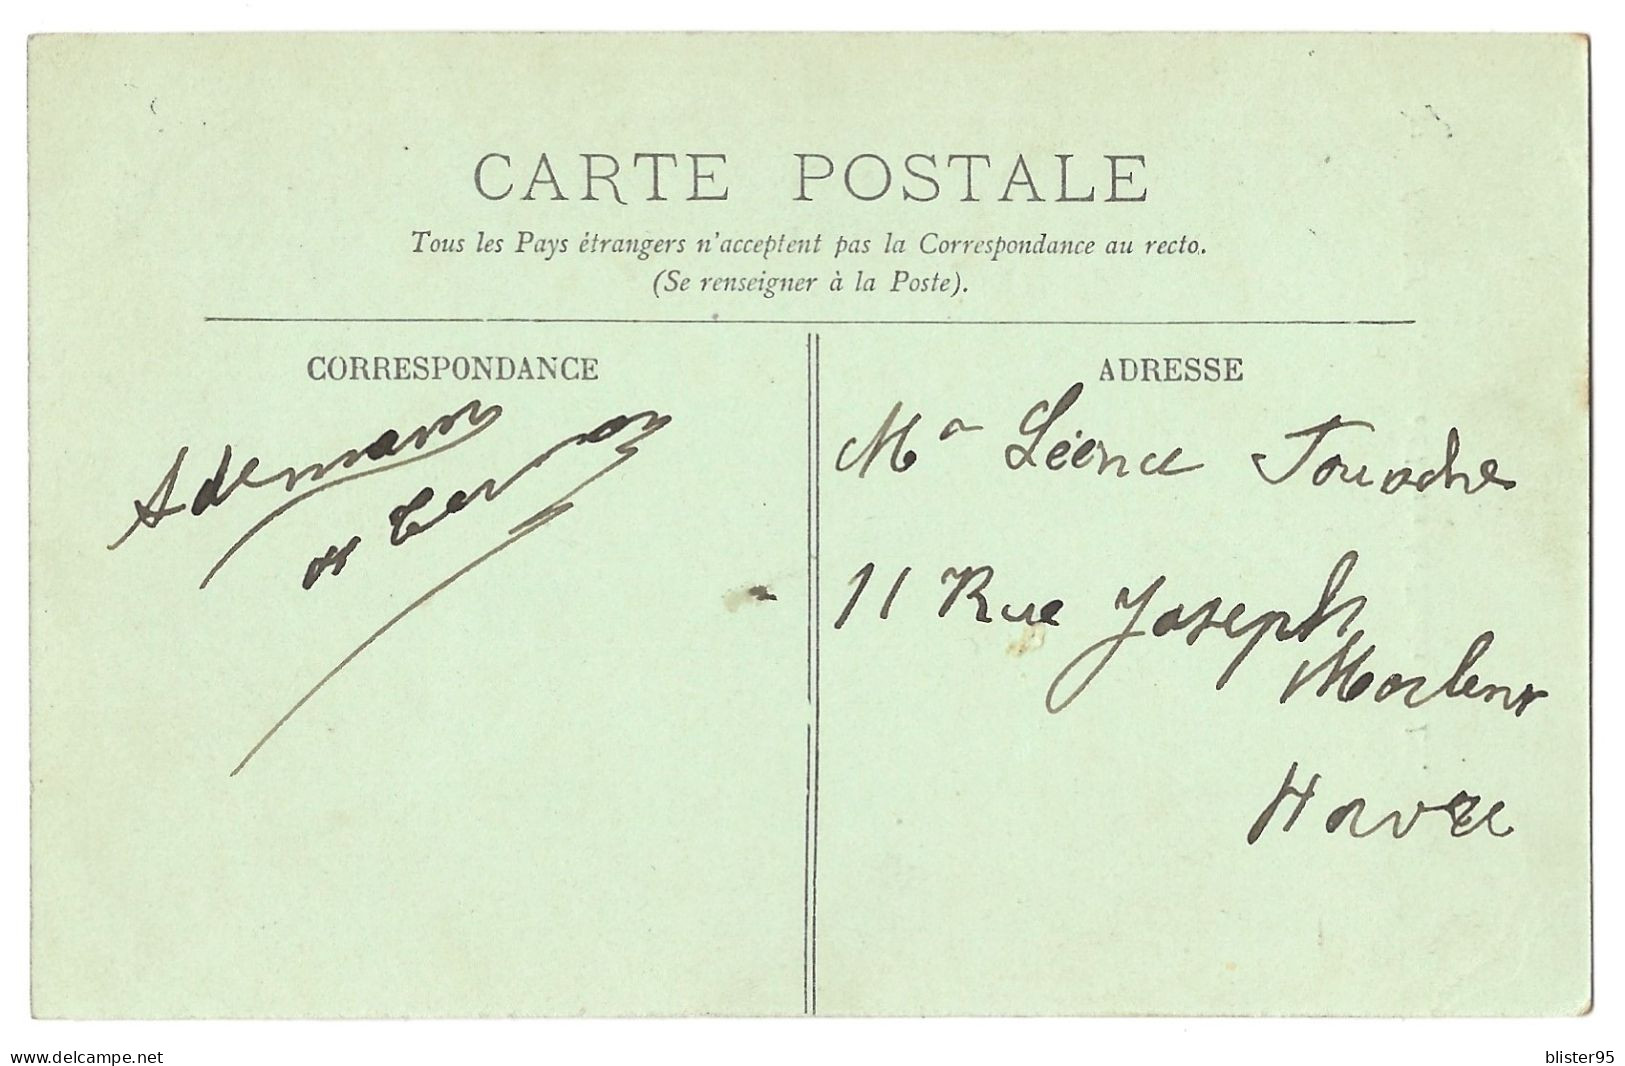 CARTE POSTALE
Tous les Pays étrangers n'acceptent pas la Correspondance au recto.
(Se renseigner à la Poste).
CORRESPONDANCE
ADRESSE
Léonce
11 Rue Joseph
Morlent
Havre
www.delcampe.net
blister95